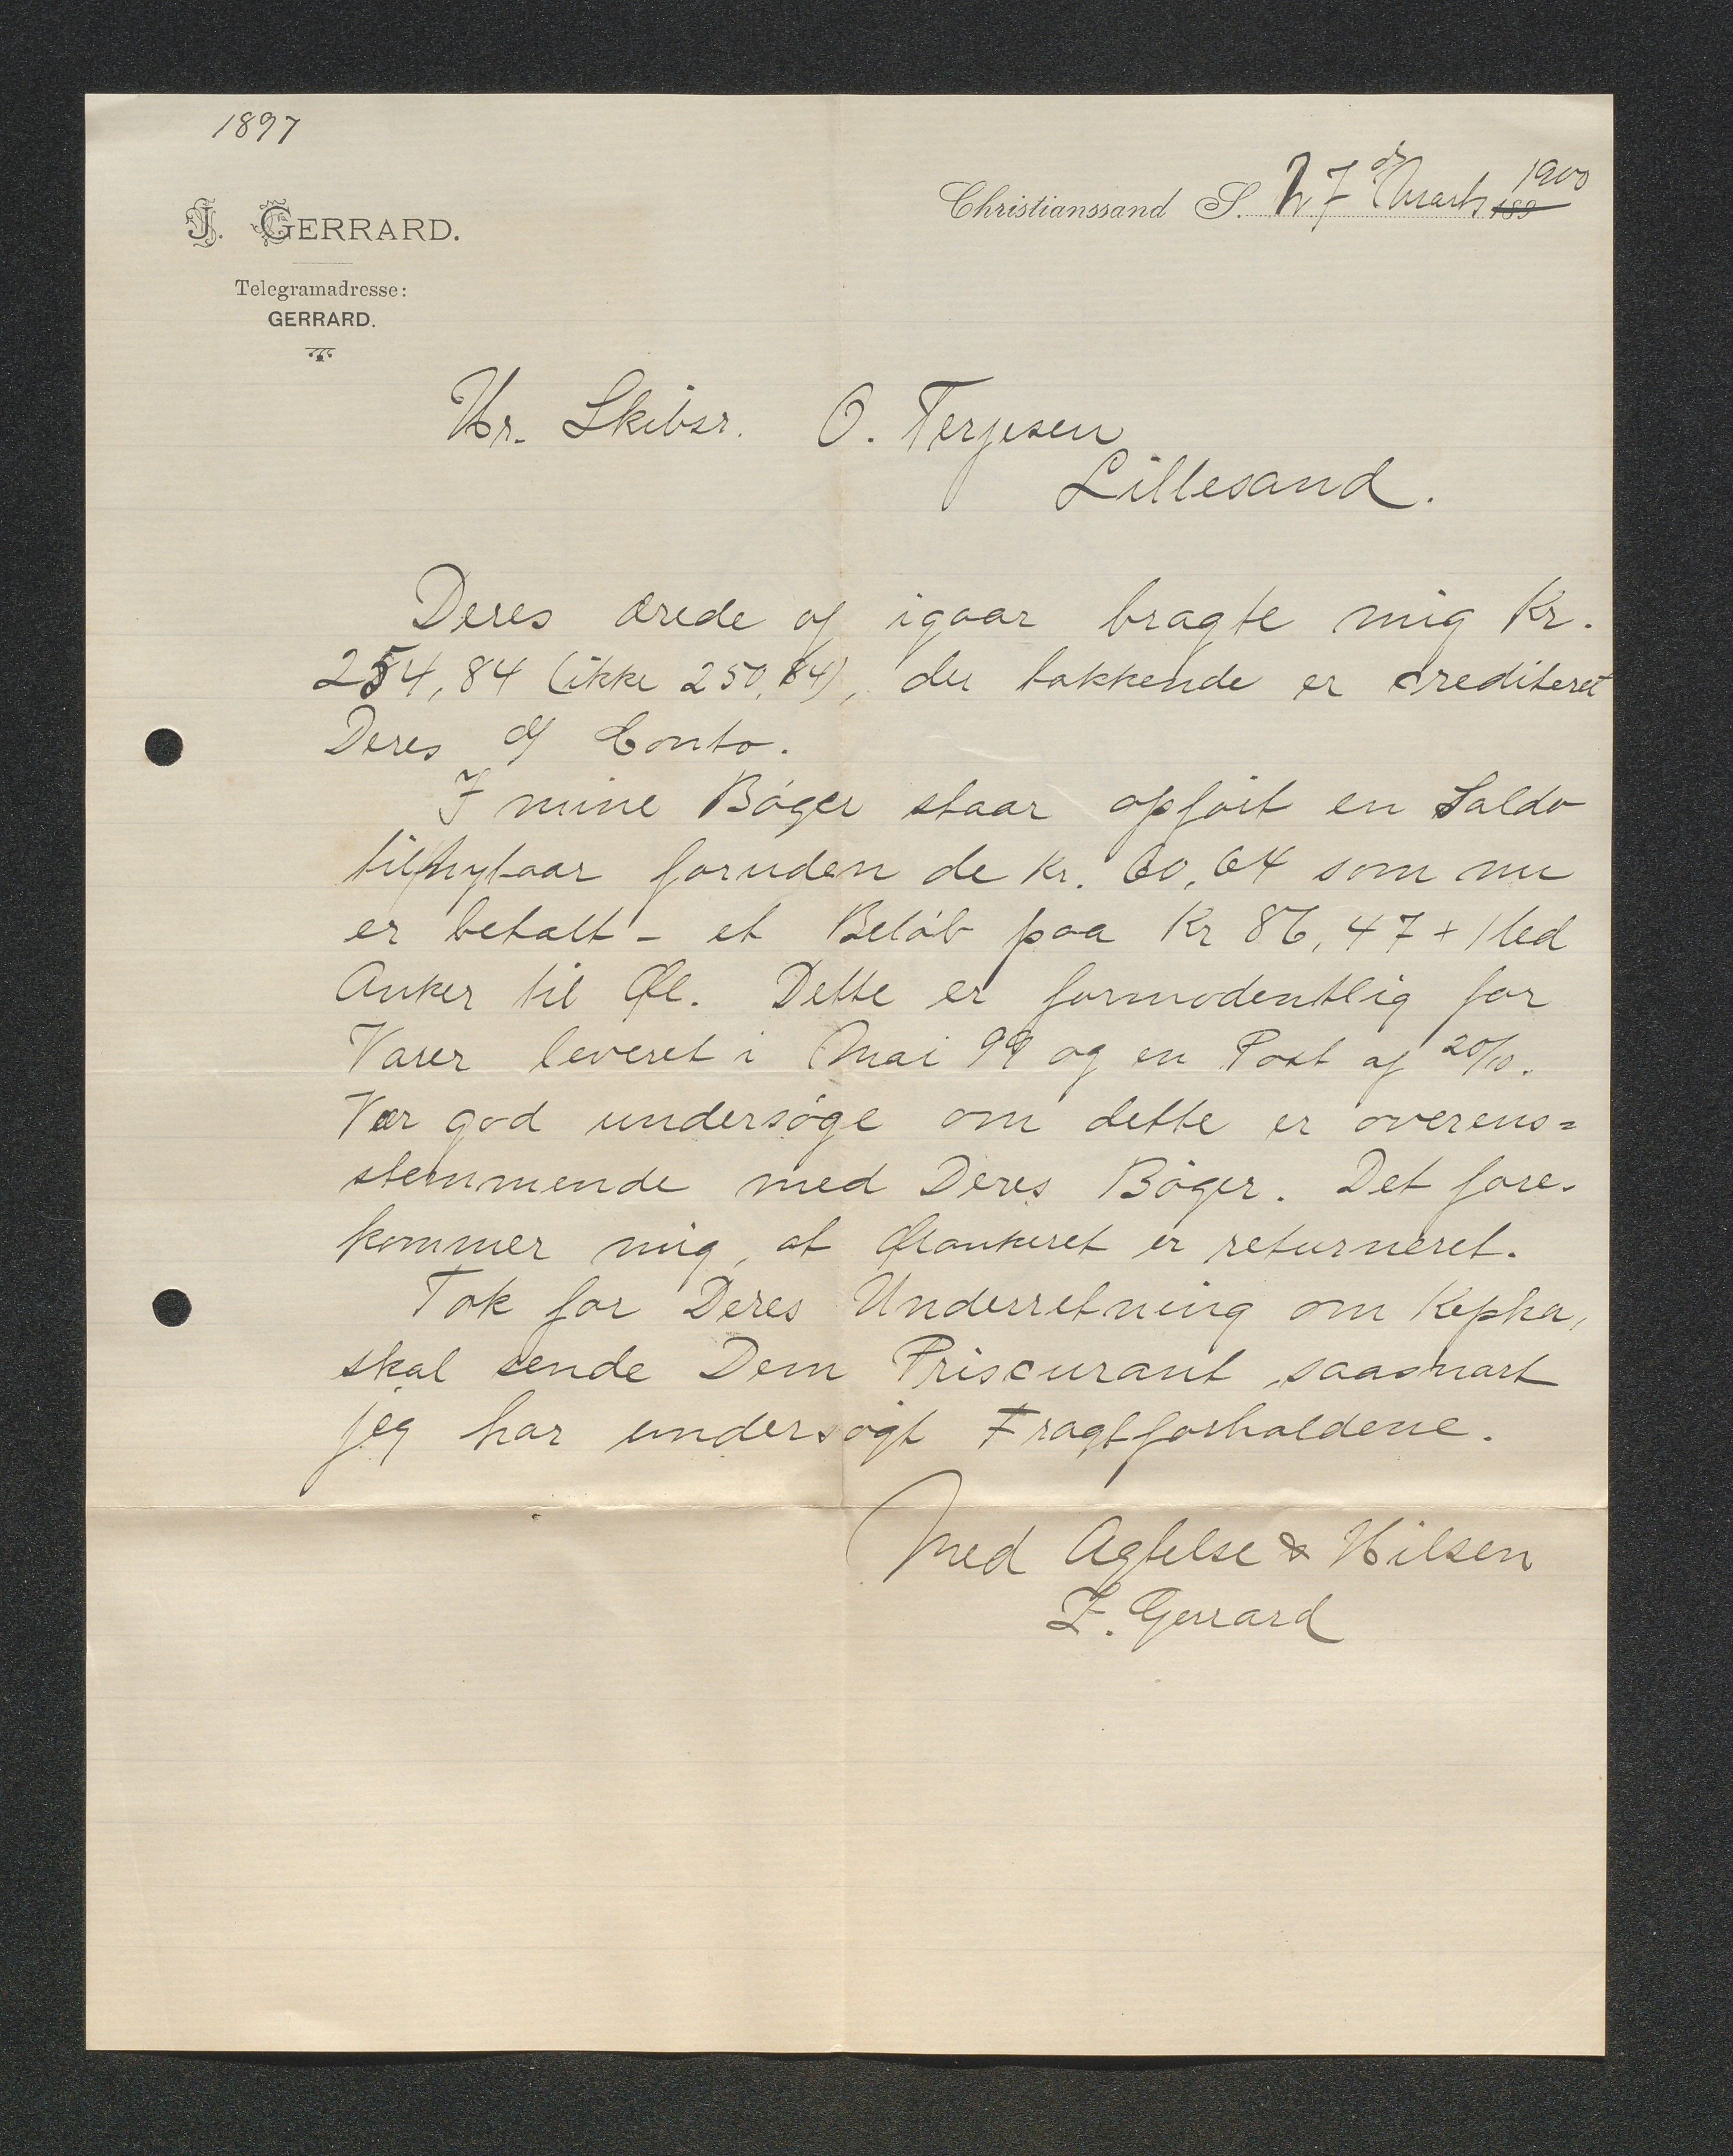 1897
J. GERRARD.
Telegramadresse:
GERRARD.
Christianssand S. 27 de Marts 1900
Hr. Skibsr. O. Terjesen
Lillesand.
Deres ærede af igaar bragte mig Kr.
254,84 (ikke 250,84), der takkende er crediteret
Deres Conto.
I mine Bøger staar opført en Saldo
til nytaar foruden de Kr. 60,64 som nu
er betalt - et Beløb paa Kr 86,47 + 1 led
Anker til Øl. Dette er formodentlig for
Varer leveret i Mai 99 og en Post af 20/10.
Vær god undersøge om dette er overens=
stemmende med Deres Bøger. Det fore-
kommer mig, at Ølankeret er returneret.
Tak for Deres Underretning om
skal sende Dem Priscurant, saasnart
jeg har undersøgt Fragtforholdene.
Med Agtelse & Hilsen
J. Gerrard